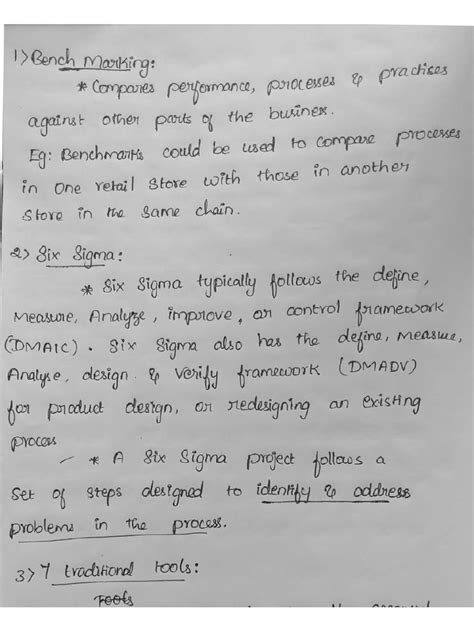 1) Bench Marking:
* Compares performance, processes & practises
against other parts of the business.
Eg: Benchmarks could be used to compare processes
in one retail store with those in another
store in the same chain.
2) Six Sigma:
* Six Sigma typically follows the define,
Measure, Analyze, improve, or control framework
(DMAIC). Six Sigma also has the define, Measure,
Analyse, design & verify framework (DMADV)
for product design, or redesigning an existing
process
* A Six Sigma project follows a
set of steps designed to identify & address
problems in the process.
3) 7 traditional tools:
Tools